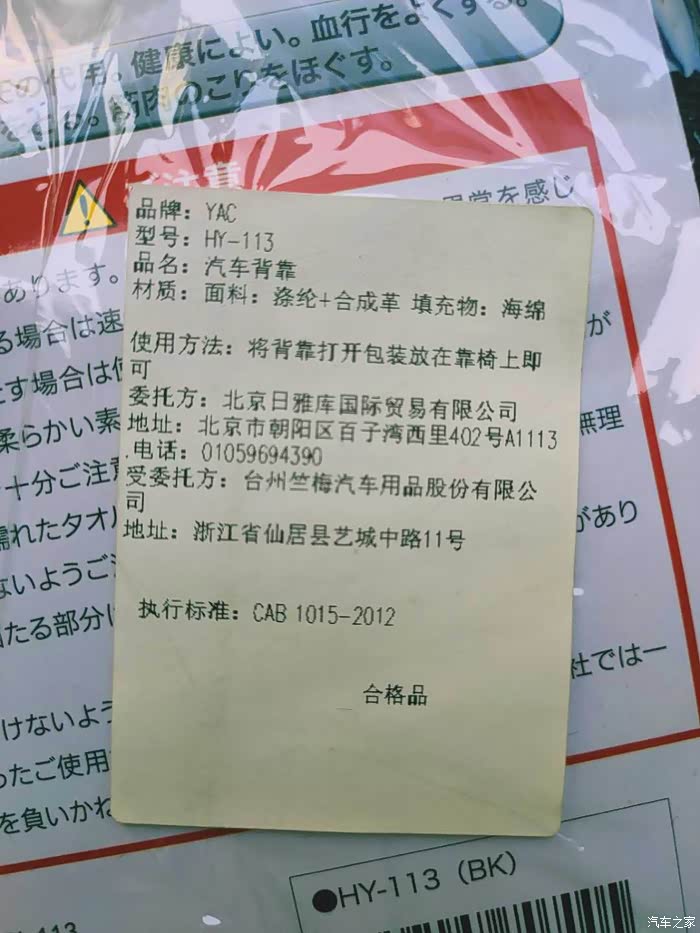 の代用。健康によい。血行をよくする。
る。筋肉のこりをほぐす。
ご注意
異常を感じ
あります。
る場合は速
が
たす場合は使
柔らかい素
無理
十分ご注意
濡れたタオル
があり
ないようご注
当たる部分は
社では一
けないよう
ったご使用
を負いかね
品牌：YAC
型号：HY-113
品名：汽车背靠
材质：面料：涤纶+合成革 填充物：海绵
使用方法：将背靠打开包装放在靠椅上即
可
委托方：北京日雅库国际贸易有限公司
地址：北京市朝阳区百子湾西里402号A1113
.电话：01059694390
受委托方：台州竺梅汽车用品股份有限公
司
地址：浙江省仙居县艺城中路11号
执行标准：CAB 1015-2012
合格品
●HY-113（BK）
-113
汽车之家